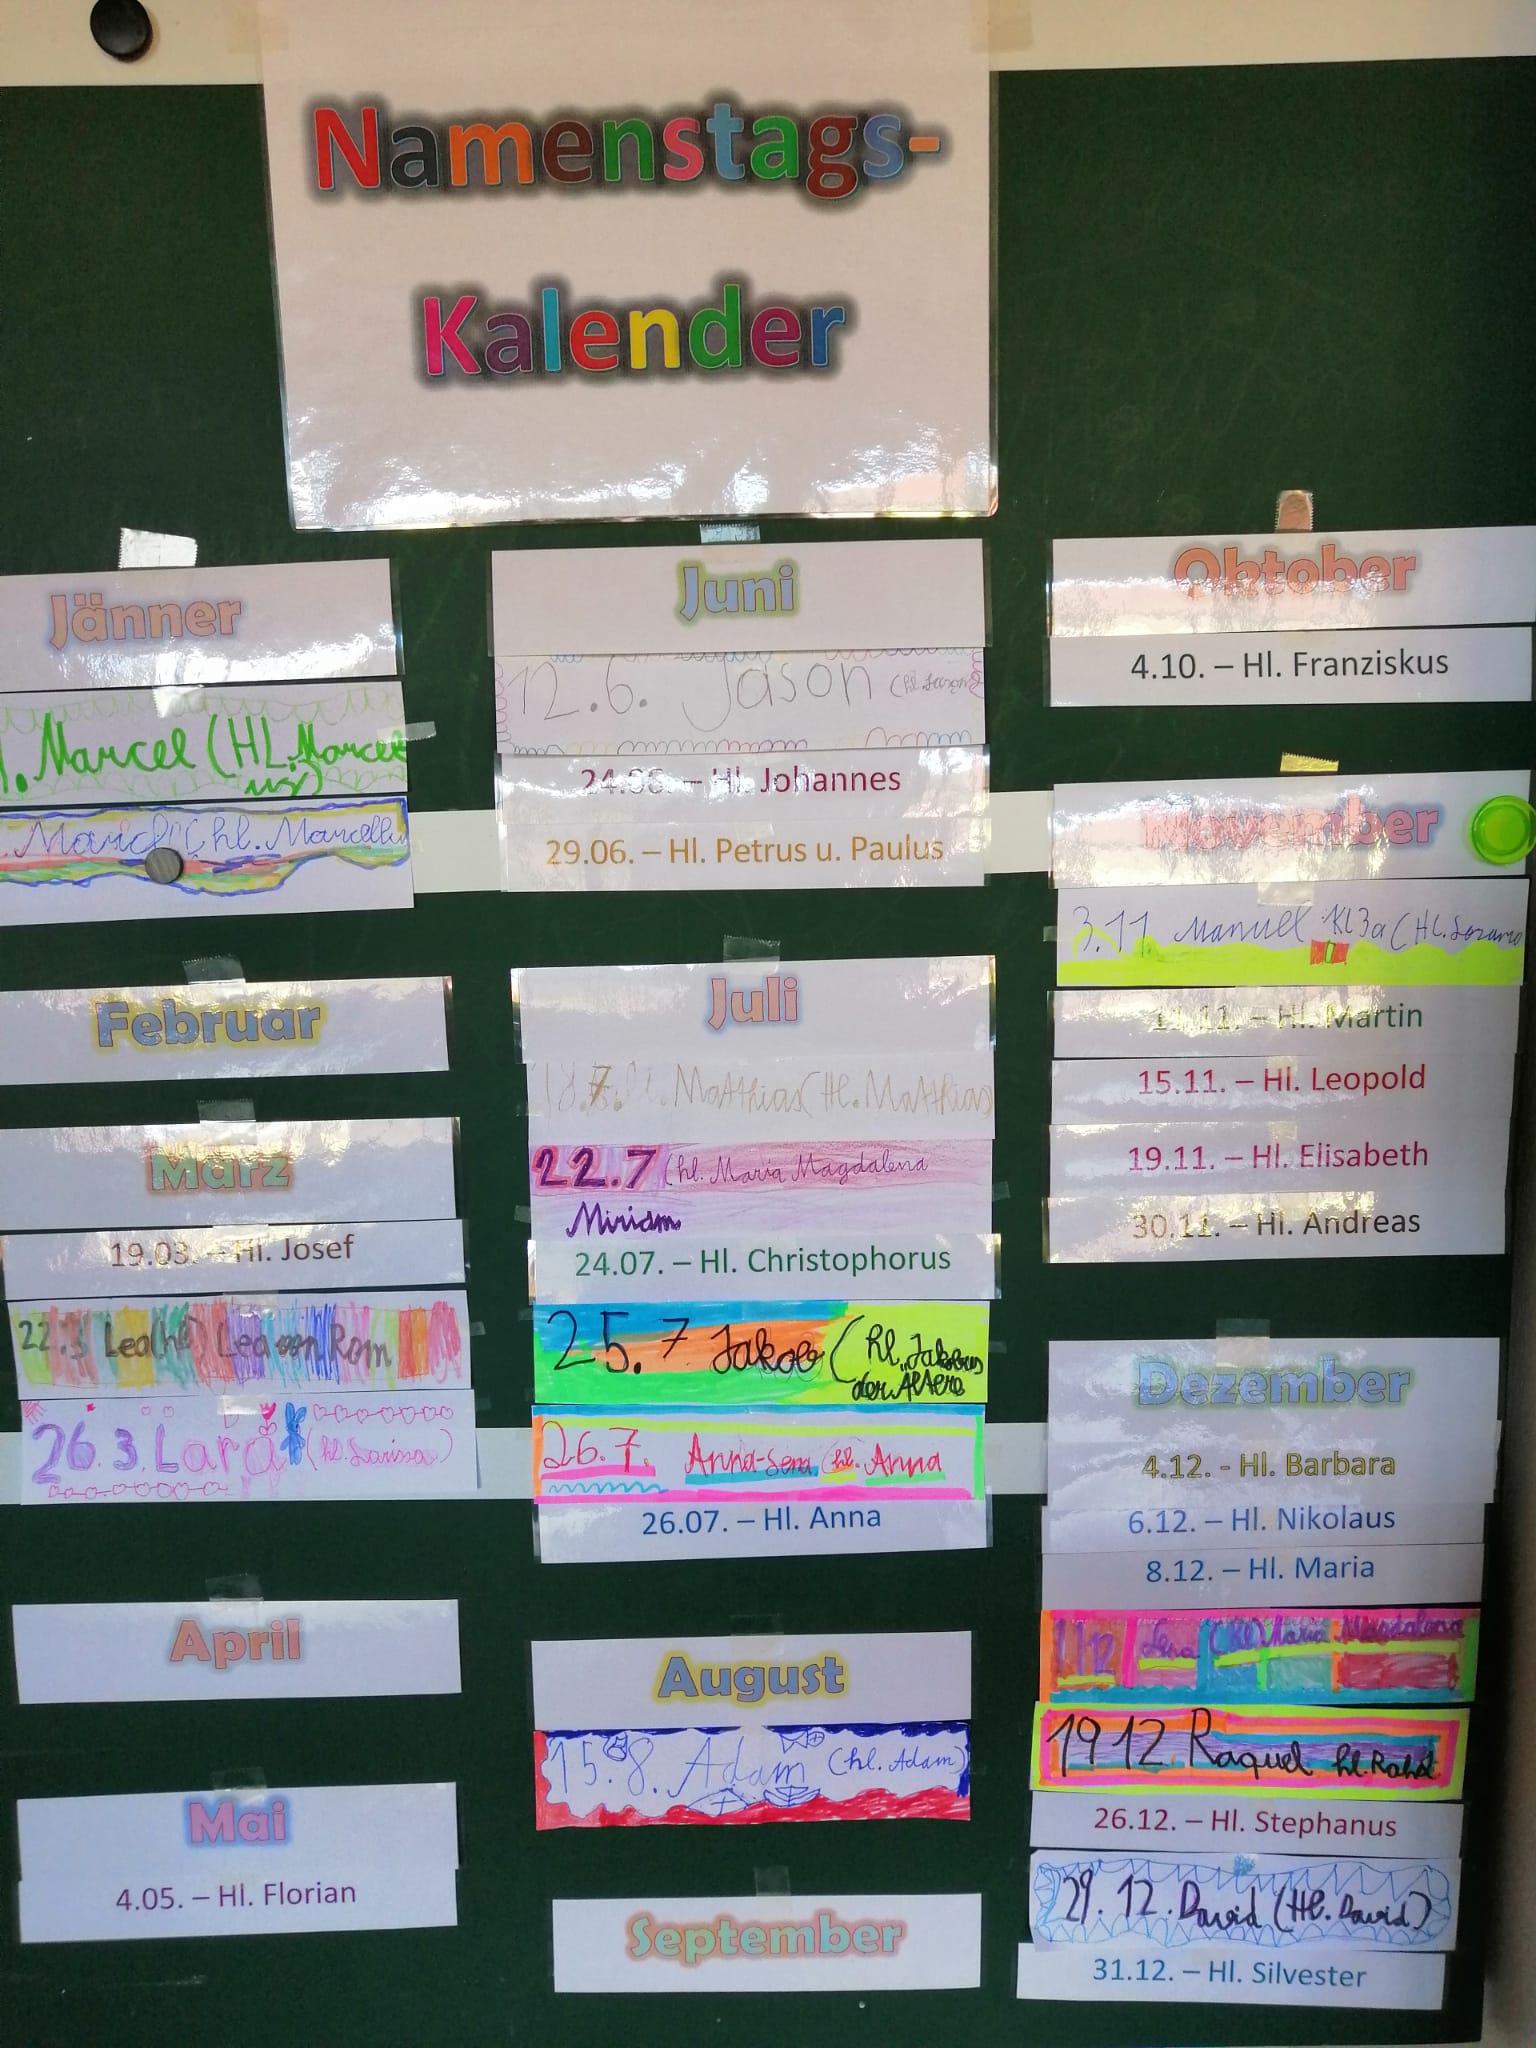 Namenstags-
Kalender
Jänner
. Marcel (Hl. Marcel
us)
(hl. Marcellu
Februar
März
19.03. – Hl. Josef
22.3 Lea (hl) Lea von Rom
26.3. Lara (hl. Larissa)
April
Mai
4.05. – Hl. Florian
Juni
12.6. Jason
24.06. – Hl. Johannes
29.06. – Hl. Petrus u. Paulus
Juli
18.7. Matthias (Hl. Matthias)
22.7 (hl. Maria Magdalena
Miriam
24.07. – Hl. Christophorus
25.7 Jakob (hl. Jakobus
der Ältere
26.7. Anna-Lena (hl. Anna
26.07. – Hl. Anna
August
15.8. Adam (hl. Adam)
September
Oktober
4.10. – Hl. Franziskus
November
3.11. Manuel Kl 3a (Hl.
11.11. – Hl. Martin
15.11. – Hl. Leopold
19.11. – Hl. Elisabeth
30.11. – Hl. Andreas
Dezember
4.12. - Hl. Barbara
6.12. – Hl. Nikolaus
8.12. – Hl. Maria
Lena (Hl) Maria Magdalena
19 12 Raquel hl.
26.12. – Hl. Stephanus
29. 12. David (Hl. David)
31.12. – Hl. Silvester